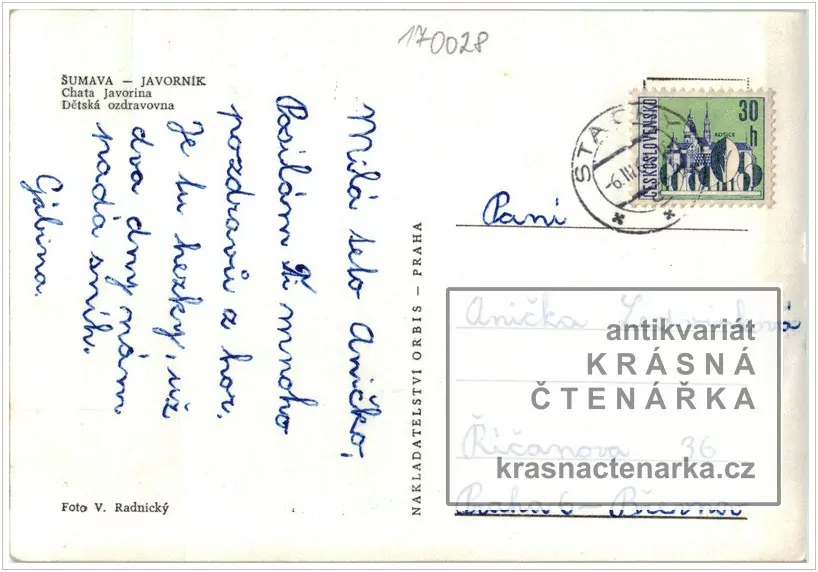 170028
ŠUMAVA — JAVORNÍK
Chata Javorina
Dětská ozdravovna
Milá teto Aničko,
Posílám Ti mnoho
pozdravů z hor.
Je tu hezky, už
dva dny nám
padá sníh.
Gábina.
Foto V. Radnický
NAKLADATELSTVÍ ORBIS — PRAHA
STACHY
6.III.
ČESKOSLOVENSKO
30 h
KOŠICE
Paní
Anička
Říčanova 36
Praha 6 — Břevnov
antikvariát
KRÁSNÁ
ČTENÁŘKA
krasnactenarka.cz